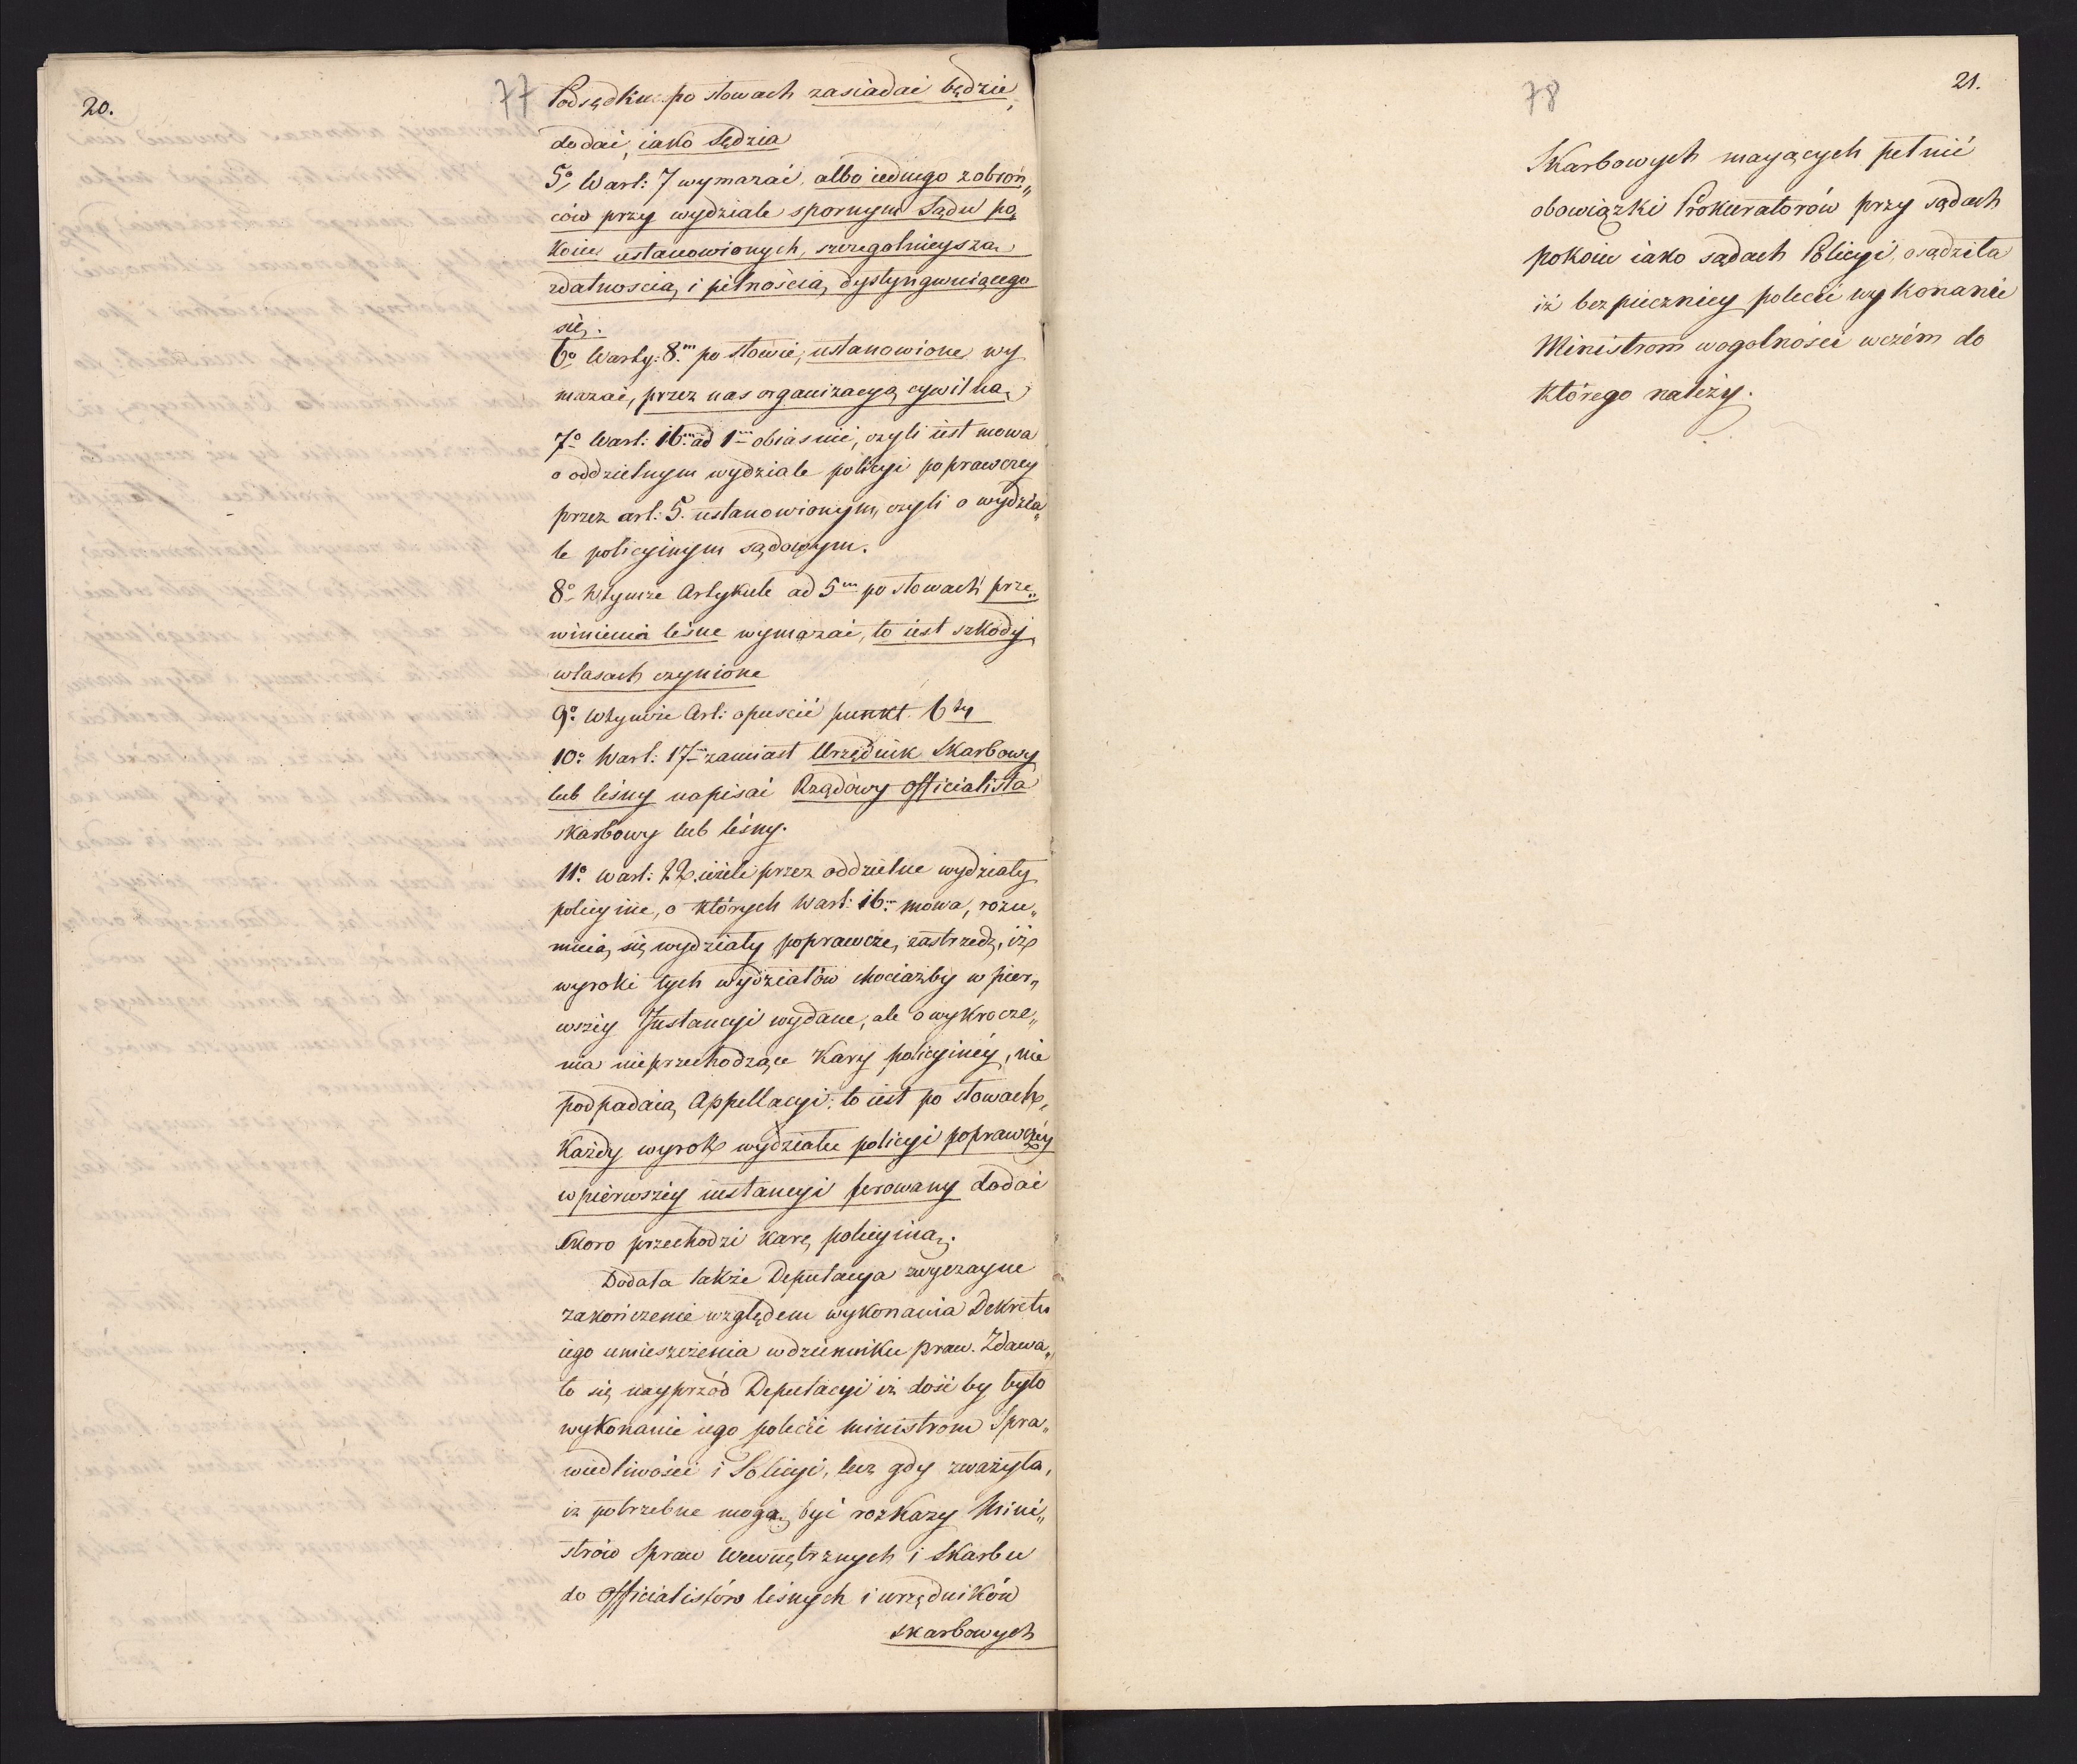 20.
77
Podsędku po słowach zasiadać będzie,
dodać, iako Sędzia
5o, Wart: 7 wymazać, albo iednego zobroń„
ców przy wydziale spornym Sądu po„
koiu ustanowionych, szczegolnieyszą
zdatnością, i pilnością, dystyngwuiącego
się.
6o Warty: 8.m po słowie, ustanowione wy
mazać, przez nas organizacyą cywilną,
7o Wart: 16.m ad 1m obiaśnić, czyli iest mowa
o oddzielnym wydziale policyi poprawczey
przez art: 5. ustanowionym, czyli o wydzia„
le policyinym sądowym.
8o Wtymże Artykule ad 5m po słowach prze„
winienia leśne wymazać, to iest szkody
wlasach czynione
9o Wtymże Art: opuścić punkt 6ty
10o Wart: 17m zamiast Urzędnik Skarbowy
lub leśny napisać Rządowy officialista
skarbowy lub leśny.
11o Wart: 22. ieżeli przez oddzielne wydziały
policyine, o których Wart: 16m mowa, rozu„
mieią się wydziały poprawcze, zastrzedz, iż
wyroki tych wydziałów chociażby w pier„
wszéy Instancyi wydane, ale o wykrocze„
nia nieprzechodzące Kary policyinéy, nie
podpadaią Appellacyi: to iest po słowach,
Każdy wyrok wydziału policyi poprawczéy
w pierwszéy instancyi ferowany dodać
skoro przechodzi karę policyiną.
Dodała także Deputacya zwyczayne
zakończenie względem wykonania Dekretu
iego umieszczenia wdzienniku praw. Zdawa„
ło się nayprzód Deputacyi iż dość by było
wykonanie iego polecić ministrom Spra„
wiedliwości i Policyi, lecz gdy zważyła,
iż potrzebne mogą być rozkazy Mini„
strów Spraw Wewnętrznych i Skarbu
do officialistów leśnych i urzędników
skarbowych
21.
78
Skarbowych maiących pełnić
obowiązki Prokuratorów przy sądach
pokoiu iako sądach Policyi, osądziła
iż bezpieczniey polecić wykonanie
Ministrom wogolności wczém do
którego należy.